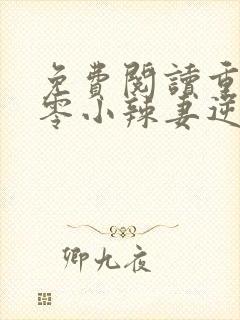 免費閱讀重
零小辣妻逆
卿九夜